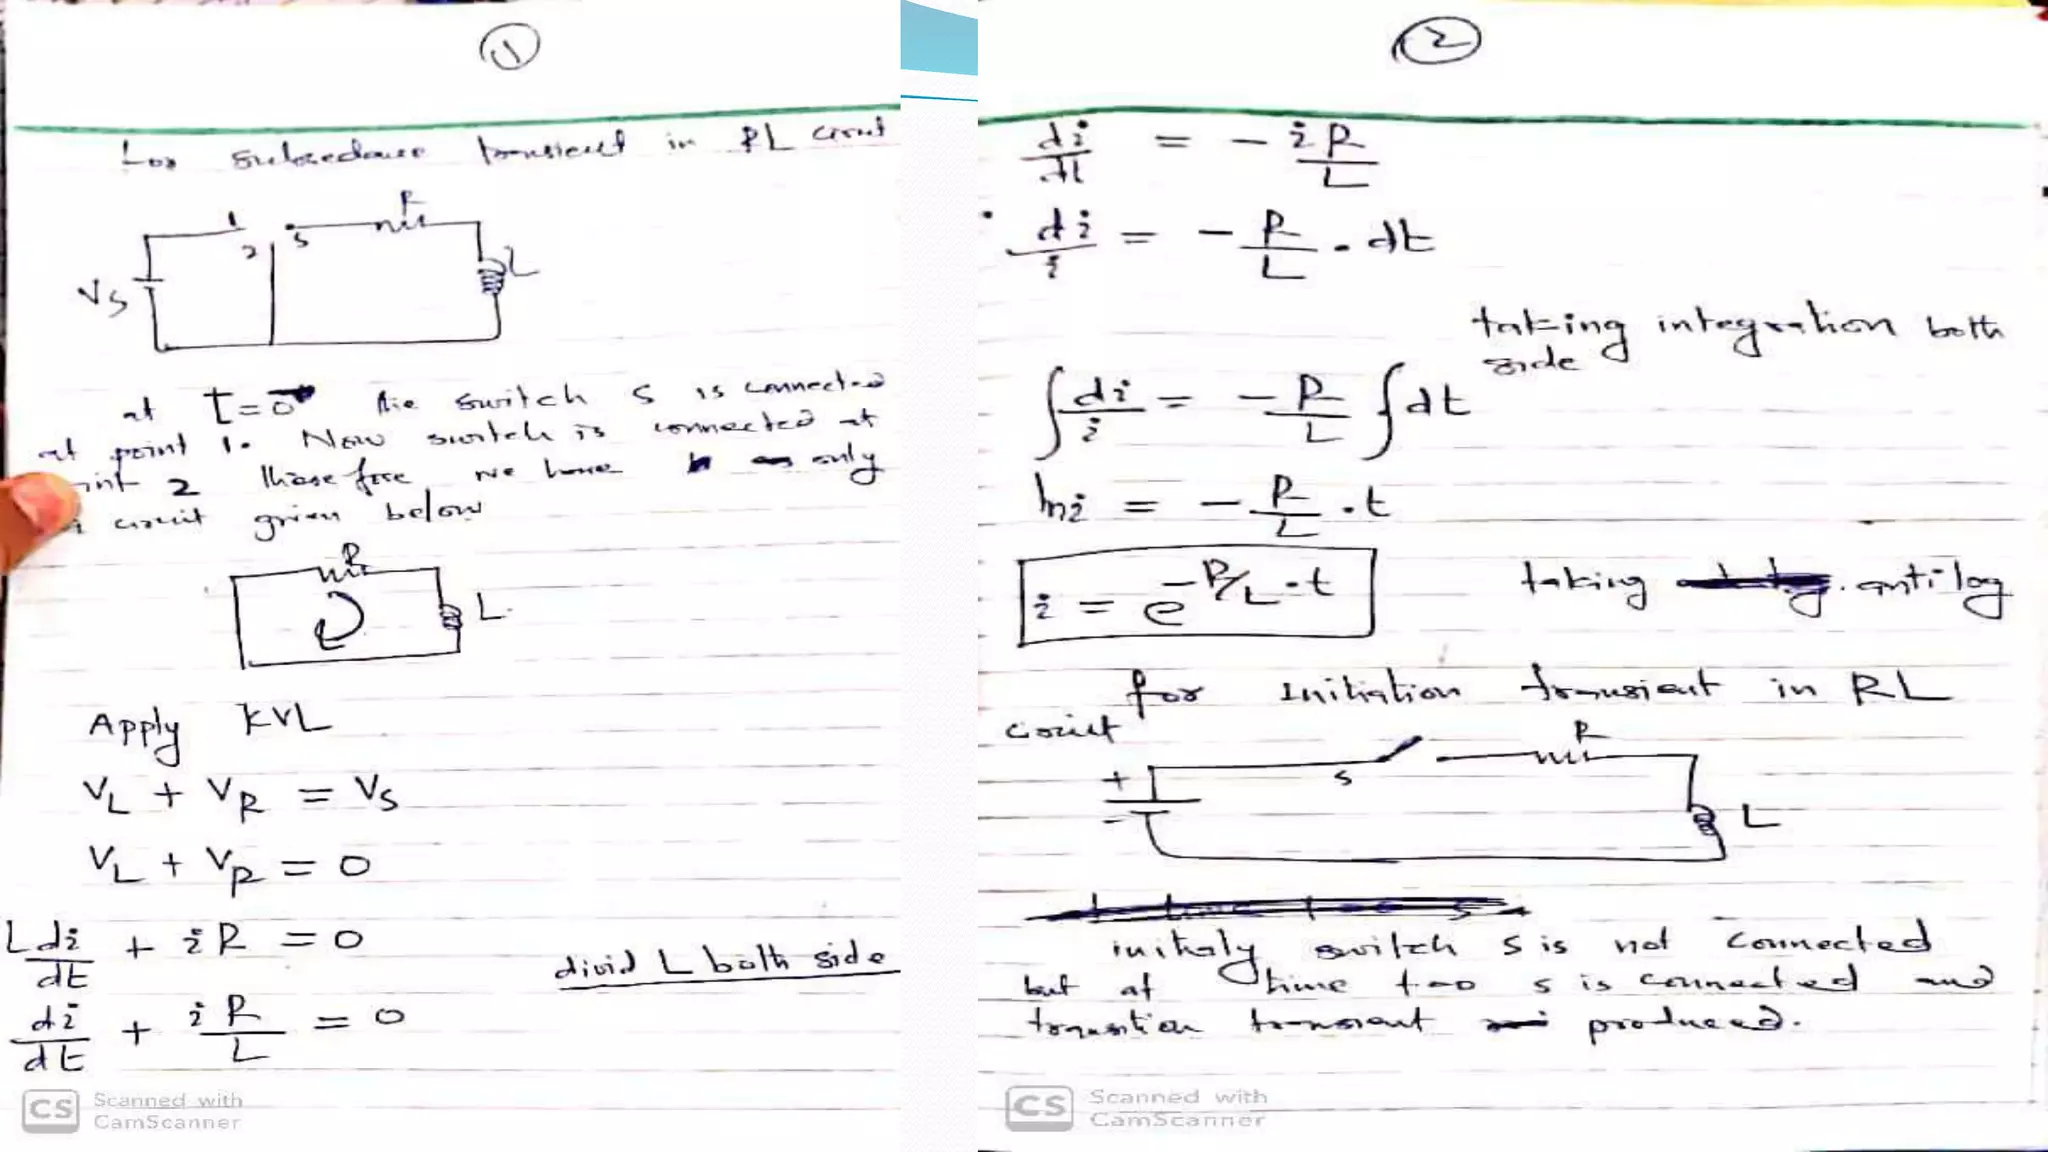 1
For subsedance transient in RL circuit
1
2
S
R
L
Vs
at t=0 the switch S is connected
at point 1. Now switch is connected at
point 2 therefore we have only
circuit given below
R
L
Apply KVL
VL + VR = Vs
VL + VR = 0
L di/dt + iR = 0
divid L both side
di/dt + iR/L = 0
CS Scanned with
CamScanner
2
di/dt = - iR/L
di/i = - R/L . dt
taking integration both
side
∫ di/i = - R/L ∫ dt
ln i = - R/L . t
i = e^-R/L . t
taking antilog
for Initiation transient in RL
circuit
R
+
S
-
L
initialy switch S is not connected
but at time t=0 S is connected and
transition transient produced.
CS Scanned with
CamScanner